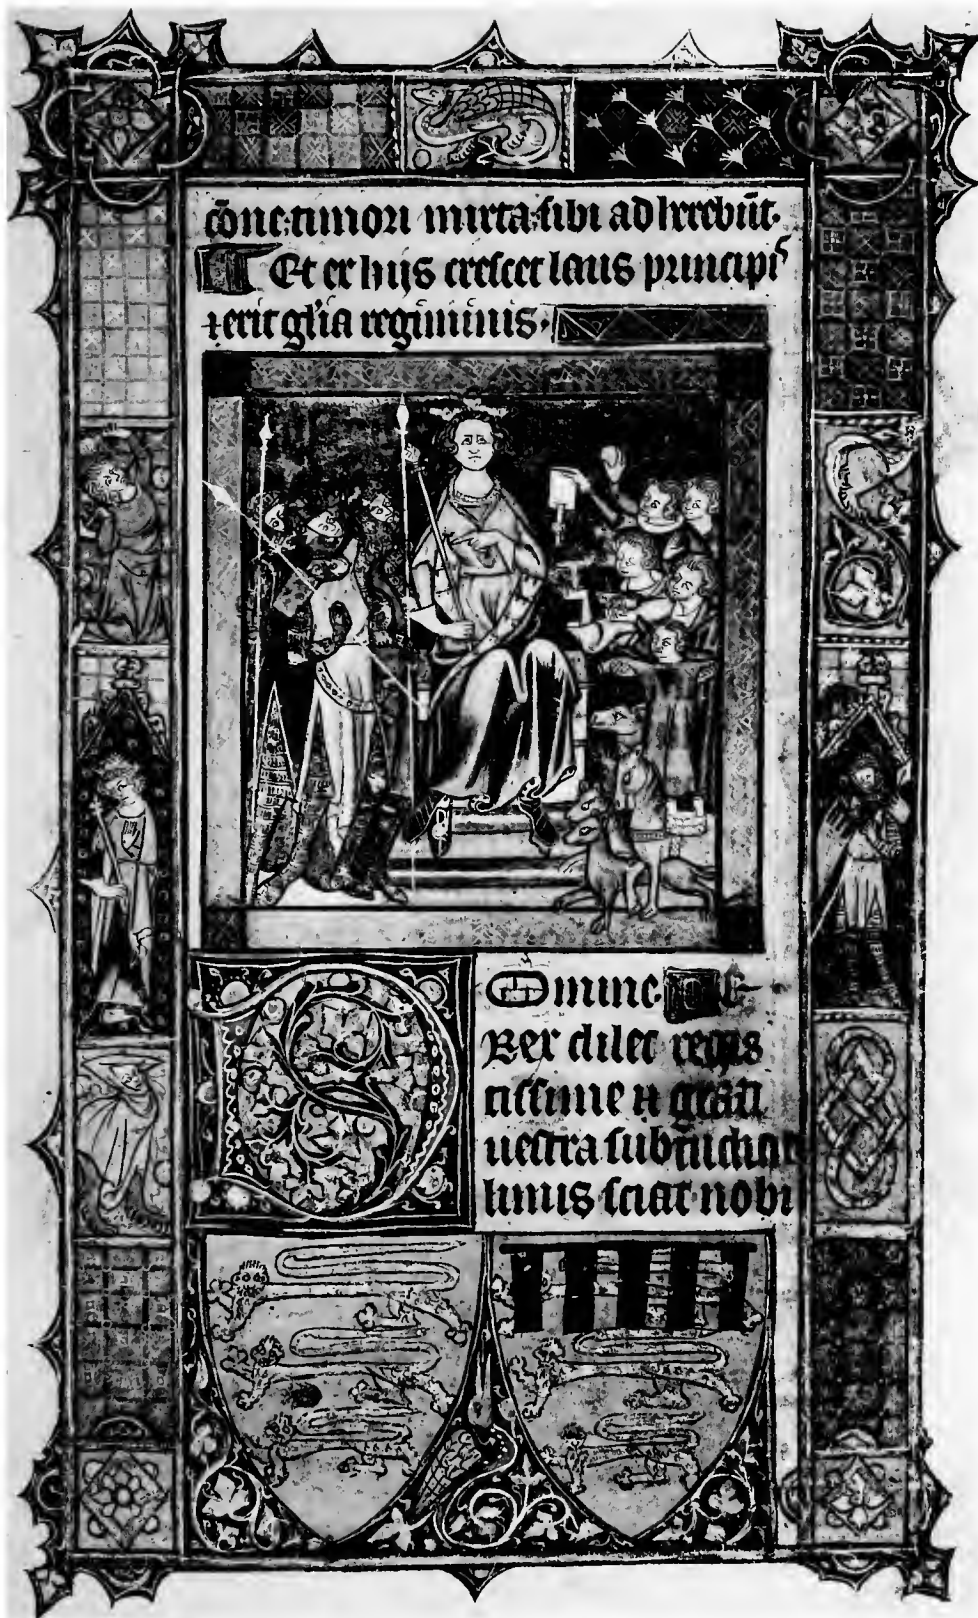 cōne: timori mixta: sibi adherebūt.
Et ex hijs crescet laus principi
⁊ erit gl'ia regiminis.
Domine
Rex dilec regis
tissime et grati
uestra sub
linus sciat nobi